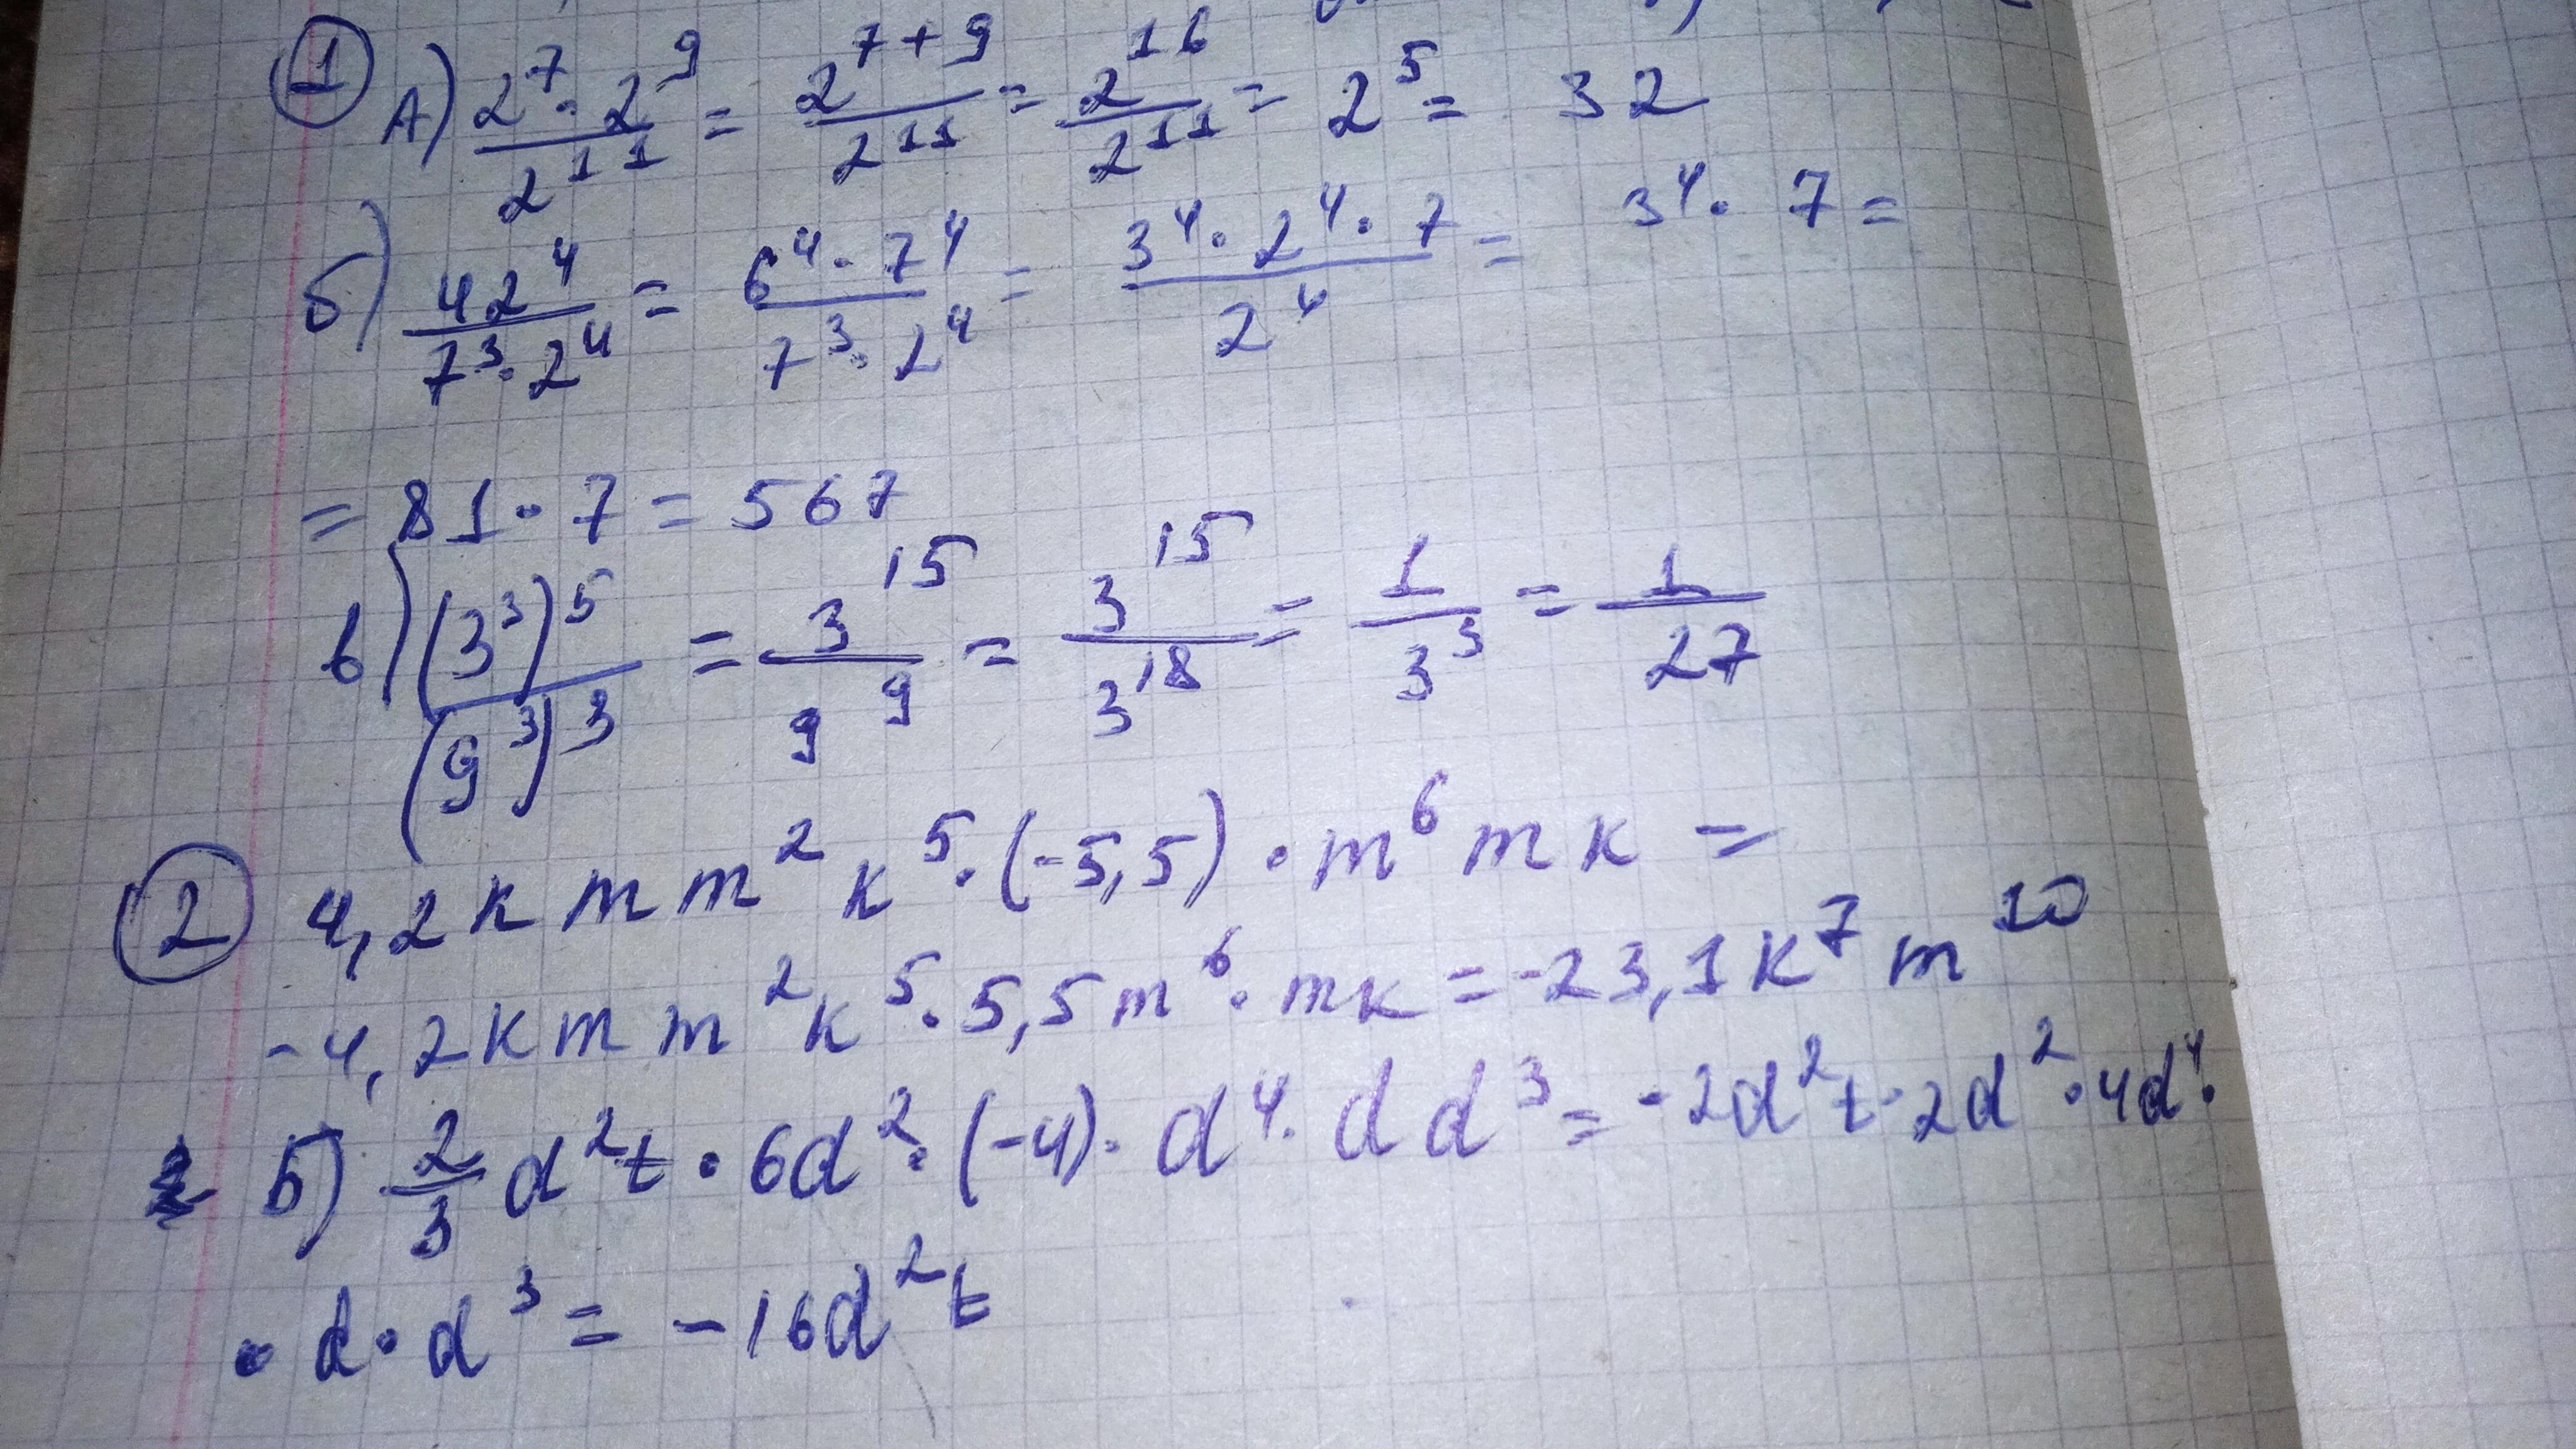 1 А) 2^7 · 2^9 / 2^11 = 2^(7+9) / 2^11 = 2^16 / 2^11 = 2^5 = 32
б) 42^4 / 7^3 · 2^4 = 6^4 · 7^4 / 7^3 · 2^4 = 3^4 · 2^4 · 7 / 2^4 = 3^4 · 7 =
= 81 · 7 = 567
в) (3^3)^5 / (9^3)^3 = 3^15 / 9^9 = 3^15 / 3^18 = 1 / 3^3 = 1 / 27
2 4,2 к m m^2 к^5 · (-5,5) · m^6 m к =
-4,2 к m m^2 к^5 · 5,5 m^6 · m к = -23,1 к^7 m^10
б) 2/3 d^2 t · 6d^2 · (-4) · d^4 · d d^3 = -2d^2 t · 2d^2 · 4d^4 ·
· d · d^3 = -16d^2 t